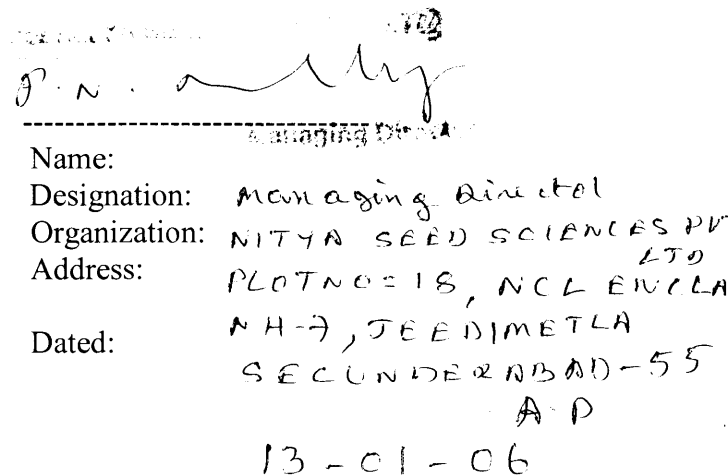 P. N.
Managing Director
Name:
Designation: Managing Director
Organization: NITYA SEED SCIENCES PVT
LTD
Address: PLOT NO = 18, NCL ENCLA
NH-7, JEEDIMETLA
Dated: SECUNDERABAD-55
A P
13-01-06